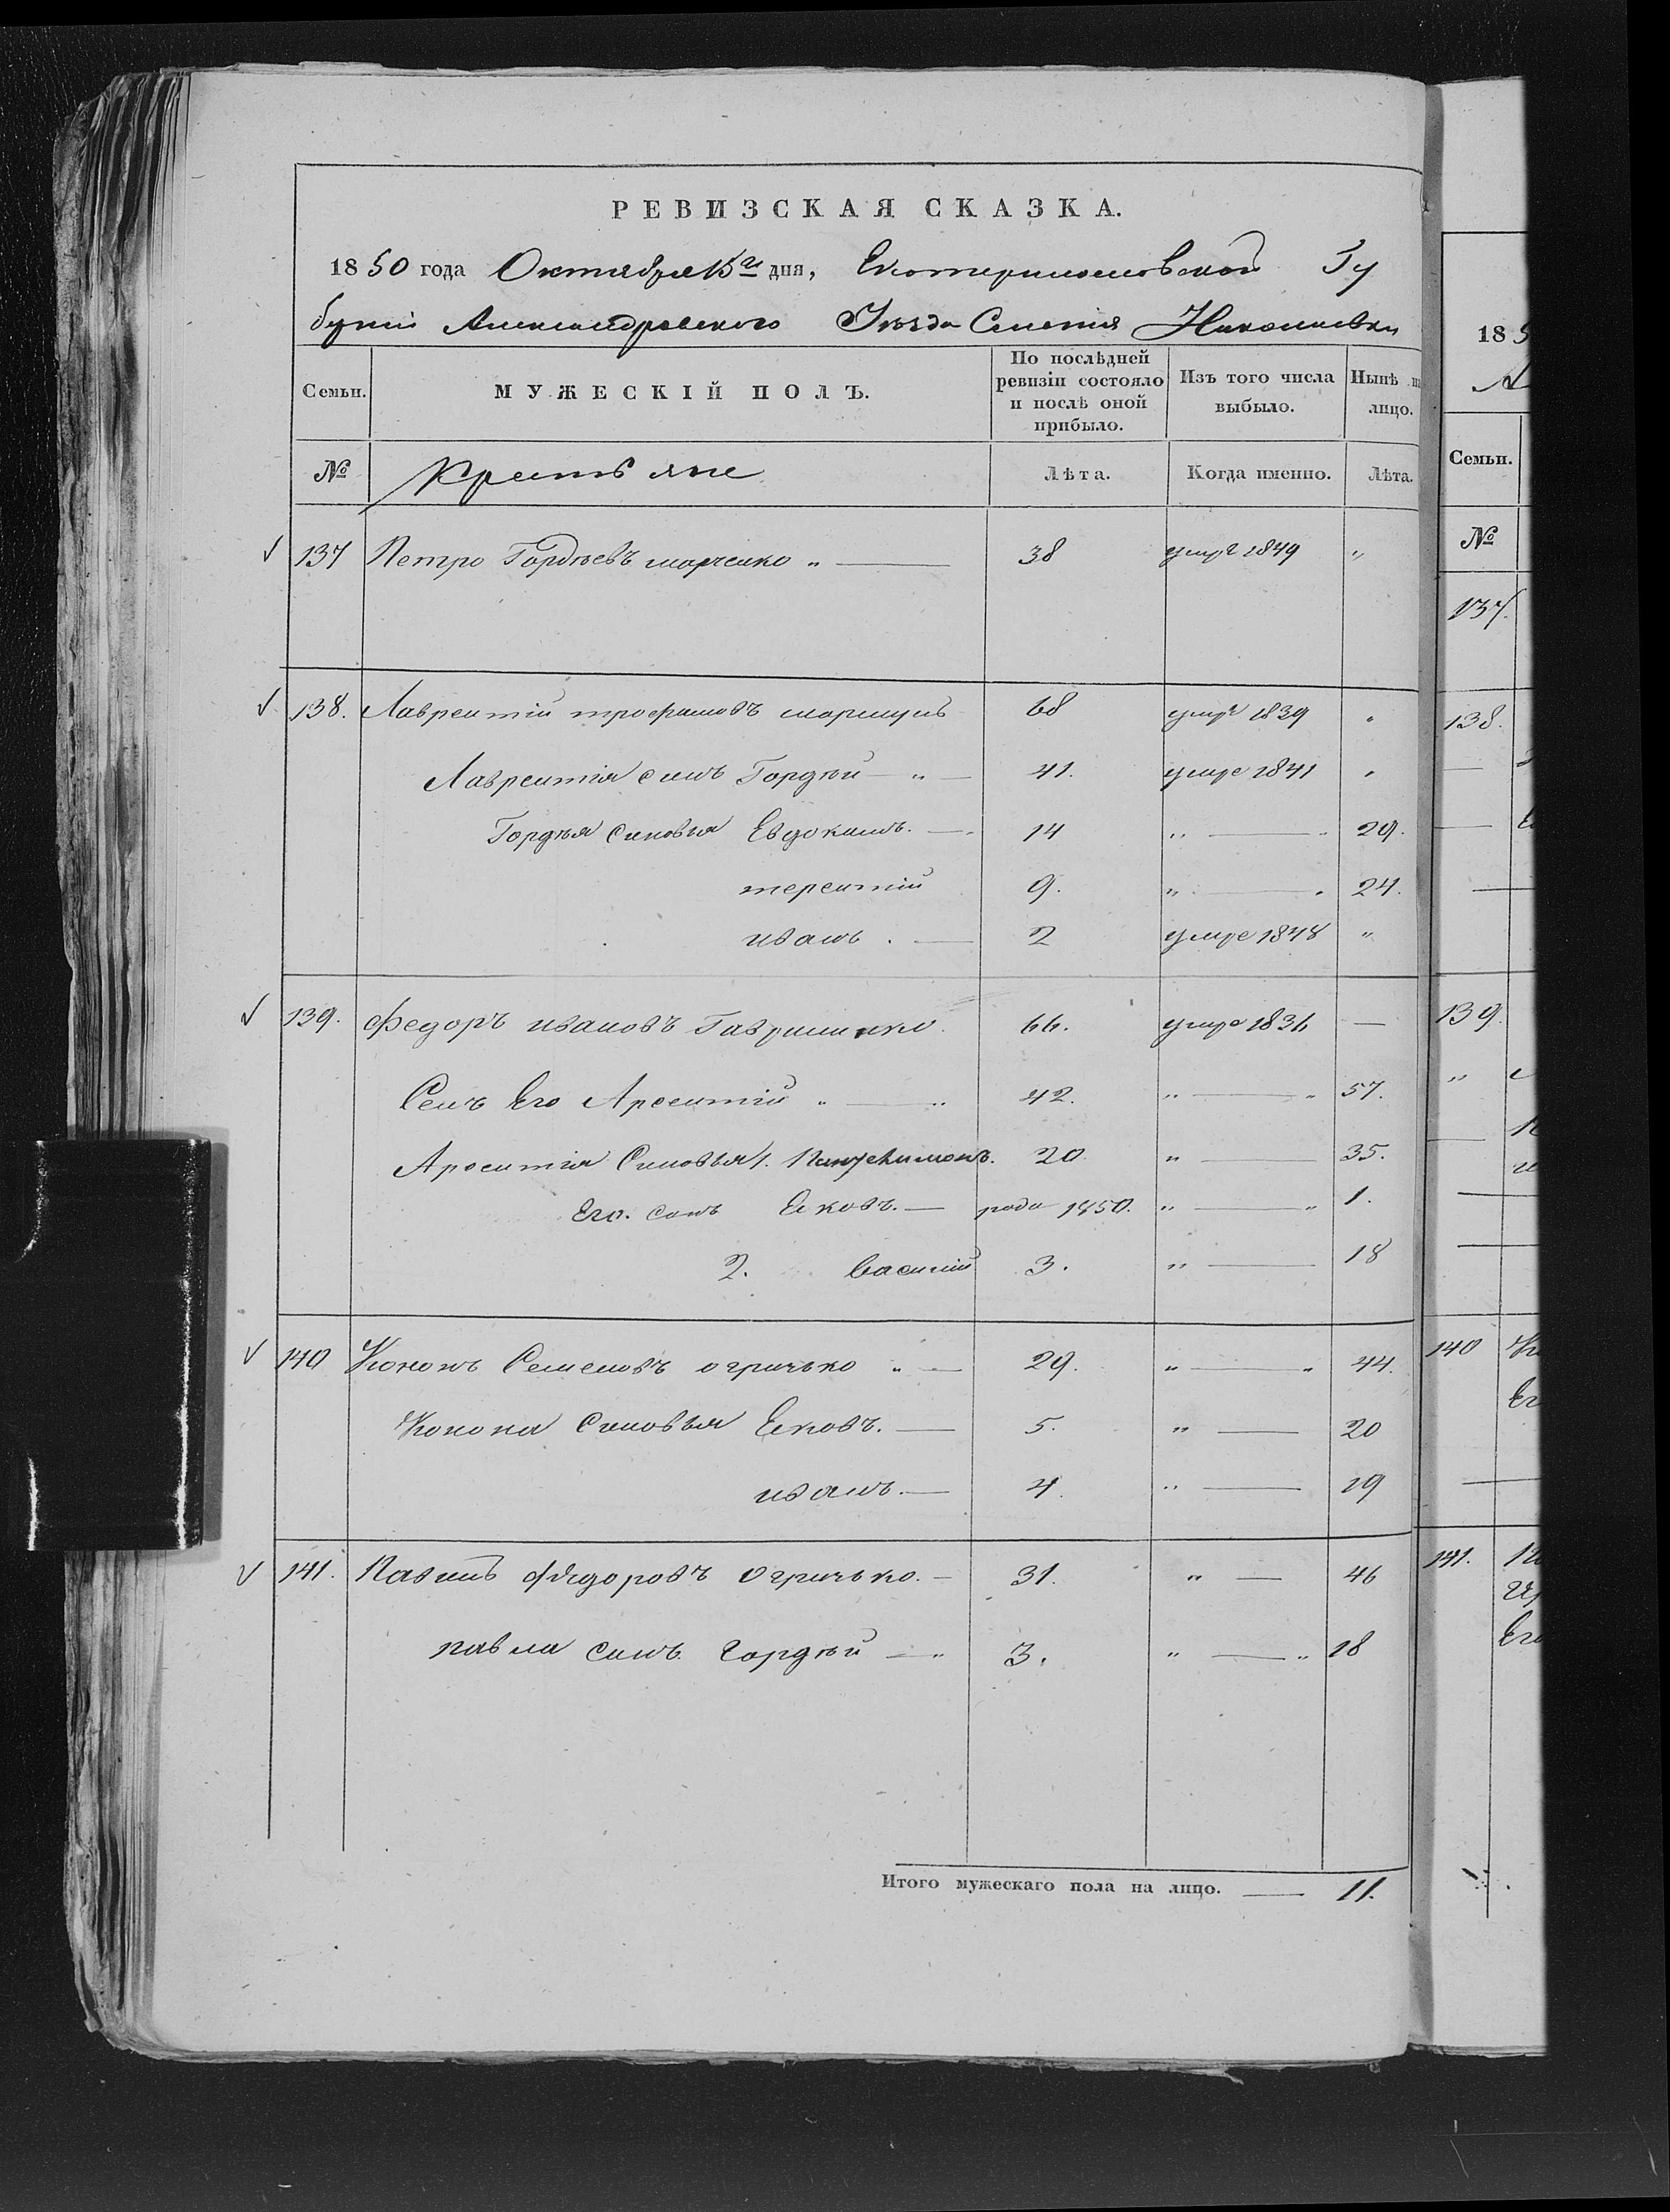 РЕВИЗСКАЯ СКАЗКА.
1850 года Октября 15го дня, Екатеринославской Гу
берніи Александровского Уезда Селенія Николаевки
Семьи. МУЖЕСКІЙ ПОЛЪ. По послѣдней ревизіи состояло и послѣ оной прибыло. Изъ того числа выбыло. Нынѣ на лицо.
№ Крестьяне Лѣта. Когда именно. Лѣта.
137 Петро Гордѣевъ марченко „ — 38 умре 1849 „
138. Лаврентій трофимовъ 68 умре 1839 „
Лаврентія синъ Гордѣй — „ — 41. умре 1841 „
Гордѣя синовья Евдокимъ. — 14 „ — 29.
терентій 9. „ — 24.
иванъ. — 2 умре 1848 „
139. Федоръ ивановъ Гавриленко 66. умре 1836 —
Синъ Его Арсентій „ — „ 42. „ — „ 57.
Арсентія Синовья 1. Пантелимонъ. 20 „ — 35.
Его. синъ Яковъ. — рода 1850. „ — „ 1.
2. василий 3. „ — 18
140 Кононъ Семеновъ огрызько „ — 29. „ — „ 44.
Конона Синовья Яковъ. — 5. „ — 20
иванъ. — 4. „ — 19
141. Павилъ Федоровъ Огрызько. — 31. „ — 46
павла синъ Гордѣй — „ 3. „ — „ 18
Итого мужескаго пола на лицо. — 11.
185
Семьи.
№
137.
138.
139.
140
Ег
141.
Его